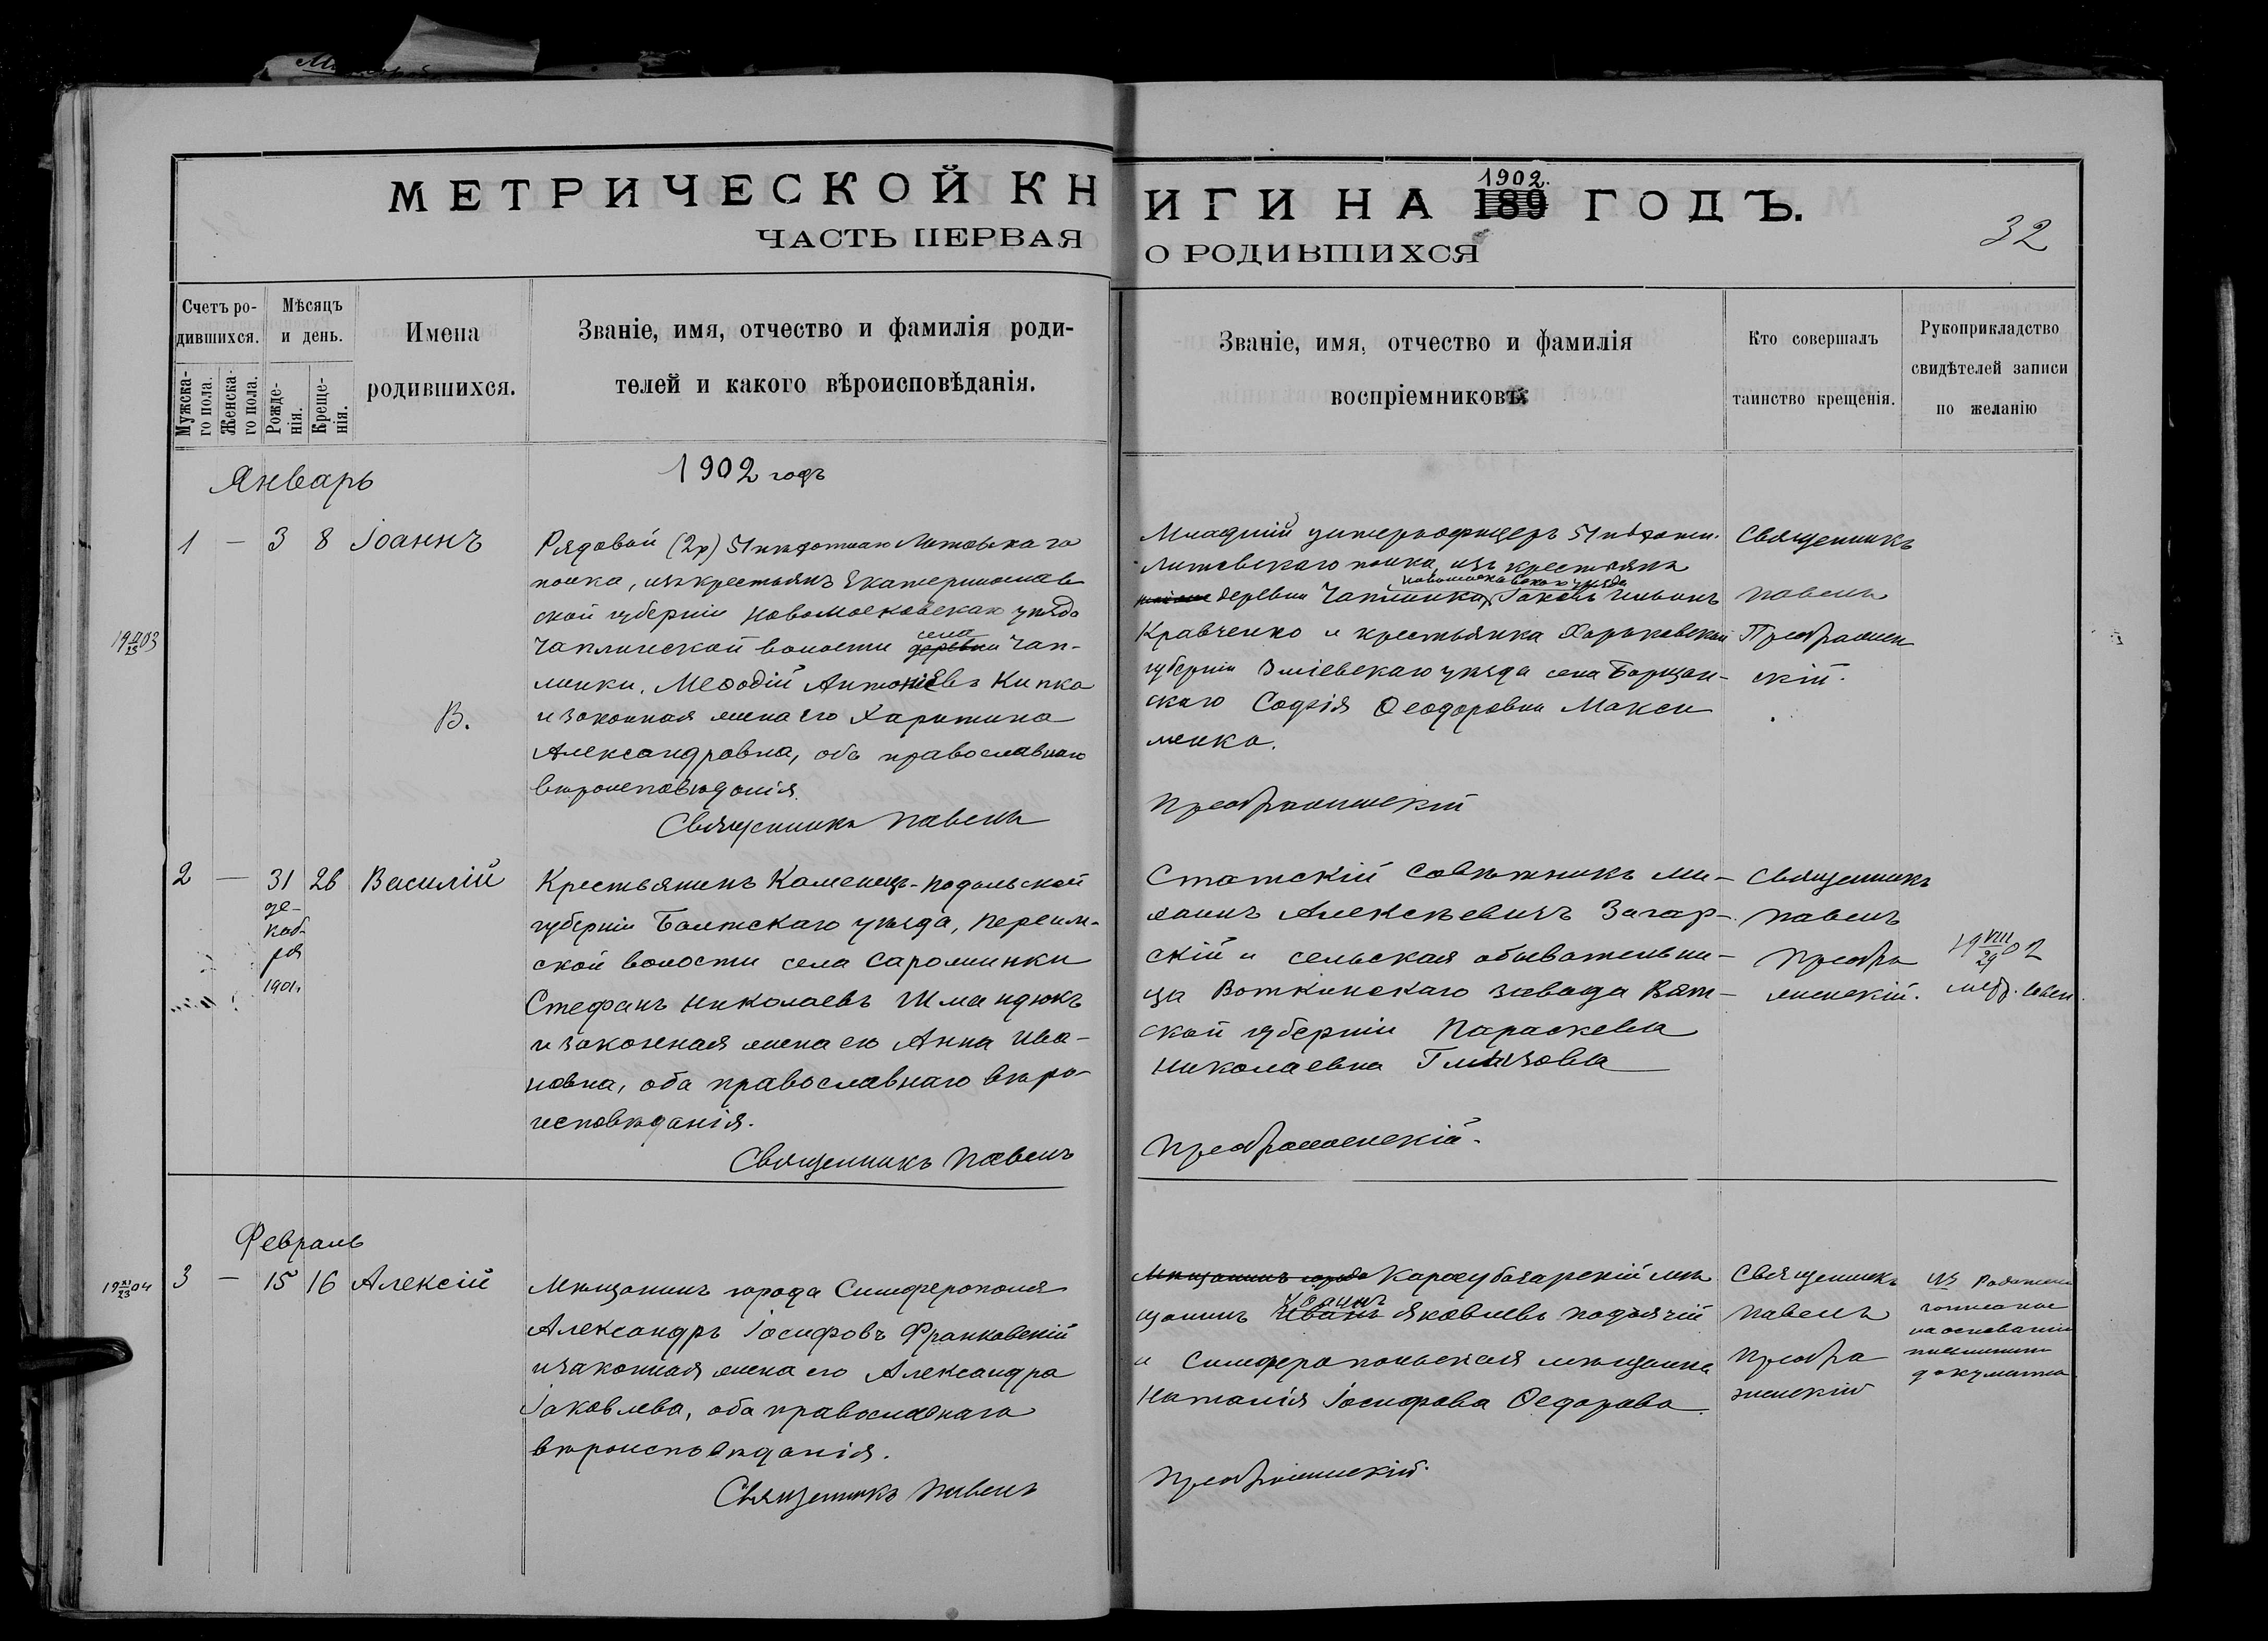 МЕТРИЧЕСКОЙ КНИГИ НА 1902. 189 ГОДЪ.
ЧАСТЬ ПЕРВАЯ О РОДИВШИХСЯ
32
Счетъ ро-
дившихся.
Мужска-
го пола.
Женска-
го пола.
Мѣсяцъ
и день.
Рожде-
нія.
Креще-
нія.
Имена
родившихся.
Званіе, имя, отчество и фамилія роди-
телей и какого вѣроисповѣданія.
Званіе, имя, отчество и фамилія
воспріемниковъ.
Кто совершалъ
таинство крещенія.
Рукоприкладство
свидѣтелей записи
по желанію
Январь
1902 годъ
19 II/25 03
1 — 3 8 Іоаннъ
В.
Рядовой (2р) 51 пѣхотнаго Литовскаго
полка, изъ крестьянъ Екатеринослав
ской губерніи Новомосковскаго уѣзда
Чаплинской волости села деревни Чап-
линки, Меѳодій Антоніевъ Кипка
и законная жена его Харитина
Александровна, оба православнаго
вѣроисповѣданія.
Священникъ Павелъ
Младшій унтеръ-офицеръ 51 пѣхотн.
Литовскаго полка, изъ крестьянъ
Новомосковскаго уѣзда
деревни Чаплинки, Іаковъ Ильинъ
Кравченко и крестьянка Харьковской
губерніи Зміевскаго уѣзда села
скаго Софія Ѳеодоровна Макси
менко.
Преображенскій
Священникъ
Павелъ
Преображен
скій.
2 — 31 26 Василій
де-
каб-
ря
1901.
Крестьянинъ Каменецъ-Подольской
губерніи Балтскаго уѣзда,
ской волости села
Стефанъ Николаевъ Шмандюкъ
и законная жена его Анна Ива-
новна, оба православнаго вѣро-
исповѣданія.
Священникъ Павелъ
Статскій Совѣтникъ Ми-
хаилъ Алексѣевичъ Загар-
скій и сельская обывательни-
ца Воткинскаго завода Вят-
ской губерніи Параскева
Николаевна Глазова
Преображенскій.
Священникъ
Павелъ
Преобра
женскій.
19 VIII/29 02
Февраль
19 XI/23 04
3 — 15 16 Алексій
Мѣщанинъ города Симферополя
Александръ Іосифовъ Франковскій
и законная жена его Александра
Іаковлева, оба православнаго
вѣроисповѣданія.
Священникъ Павелъ
Мѣщанинъ города Карасубазарскій мѣ
щанинъ Иванъ Іоаннъ Яковлевъ Подъячій
и Симферопольская мѣщанка
Наталія Іосифова Ѳедорова.
Преображенскій.
Священникъ
Павелъ
Преобра
женскій
на основаніи
документа